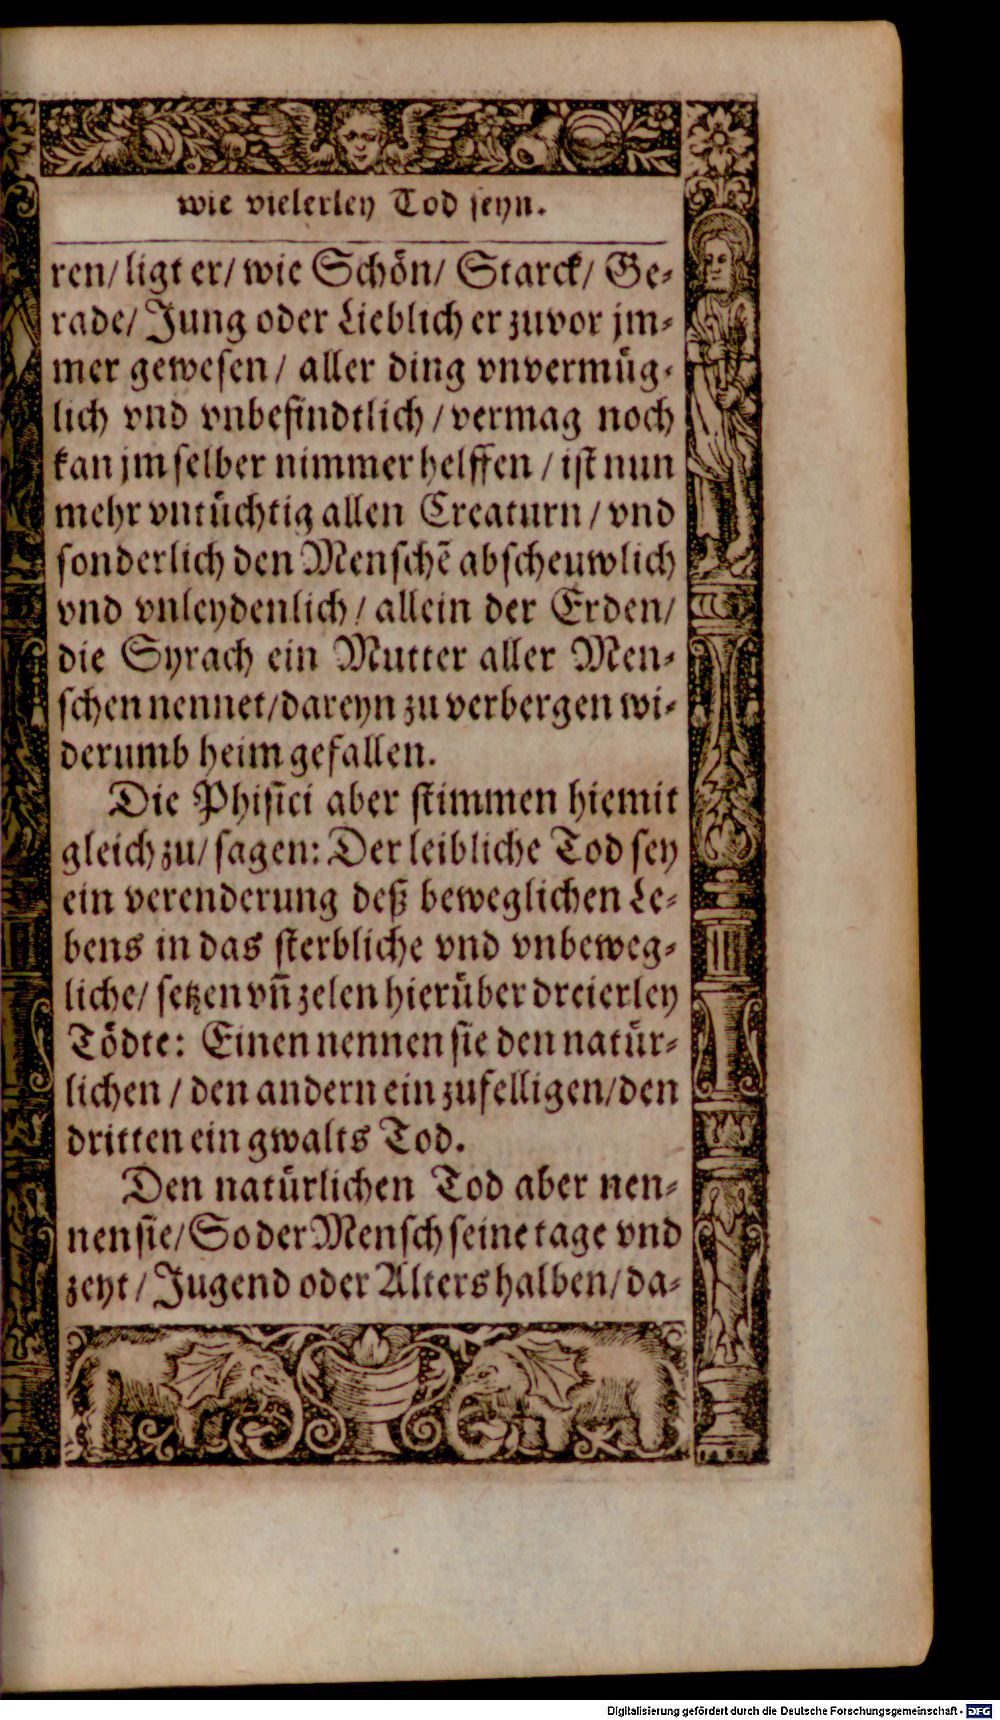 wie vielerley Tod seyn.
ren/ ligt er/ wie Schön/ Starck/ Ge-
rade/ Jung oder Lieblich er zuvor jm-
mer gewesen/ aller ding vnvermüg-
lich vnd vnbefindtlich/ vermag noch
kan jm selber nimmer helffen/ ist nun
mehr vntüchtig allen Creaturn/ vnd
sonderlich den Menschẽ abscheuwlich
vnd vnleydenlich/ allein der Erden/
die Syrach ein Mutter aller Men-
schen nennet/ dareyn zu verbergen wi-
derumb heim gefallen.
Die Phisici aber stimmen hiemit
gleich zu/ sagen: Der leibliche Tod sey
ein verenderung deß beweglichen Le-
bens in das sterbliche vnd vnbeweg-
liche/ setzen vñ zelen hierüber dreierley
Tödte: Einen nennen sie den natür-
lichen/ den andern ein zufelligen/ den
dritten ein gwalts Tod.
Den natürlichen Tod aber nen-
nen sie/ So der Mensch seine tage vnd
zeyt/ Jugend oder Alters halben/ da-
Digitalisierung gefördert durch die Deutsche Forschungsgemeinschaft - DFG